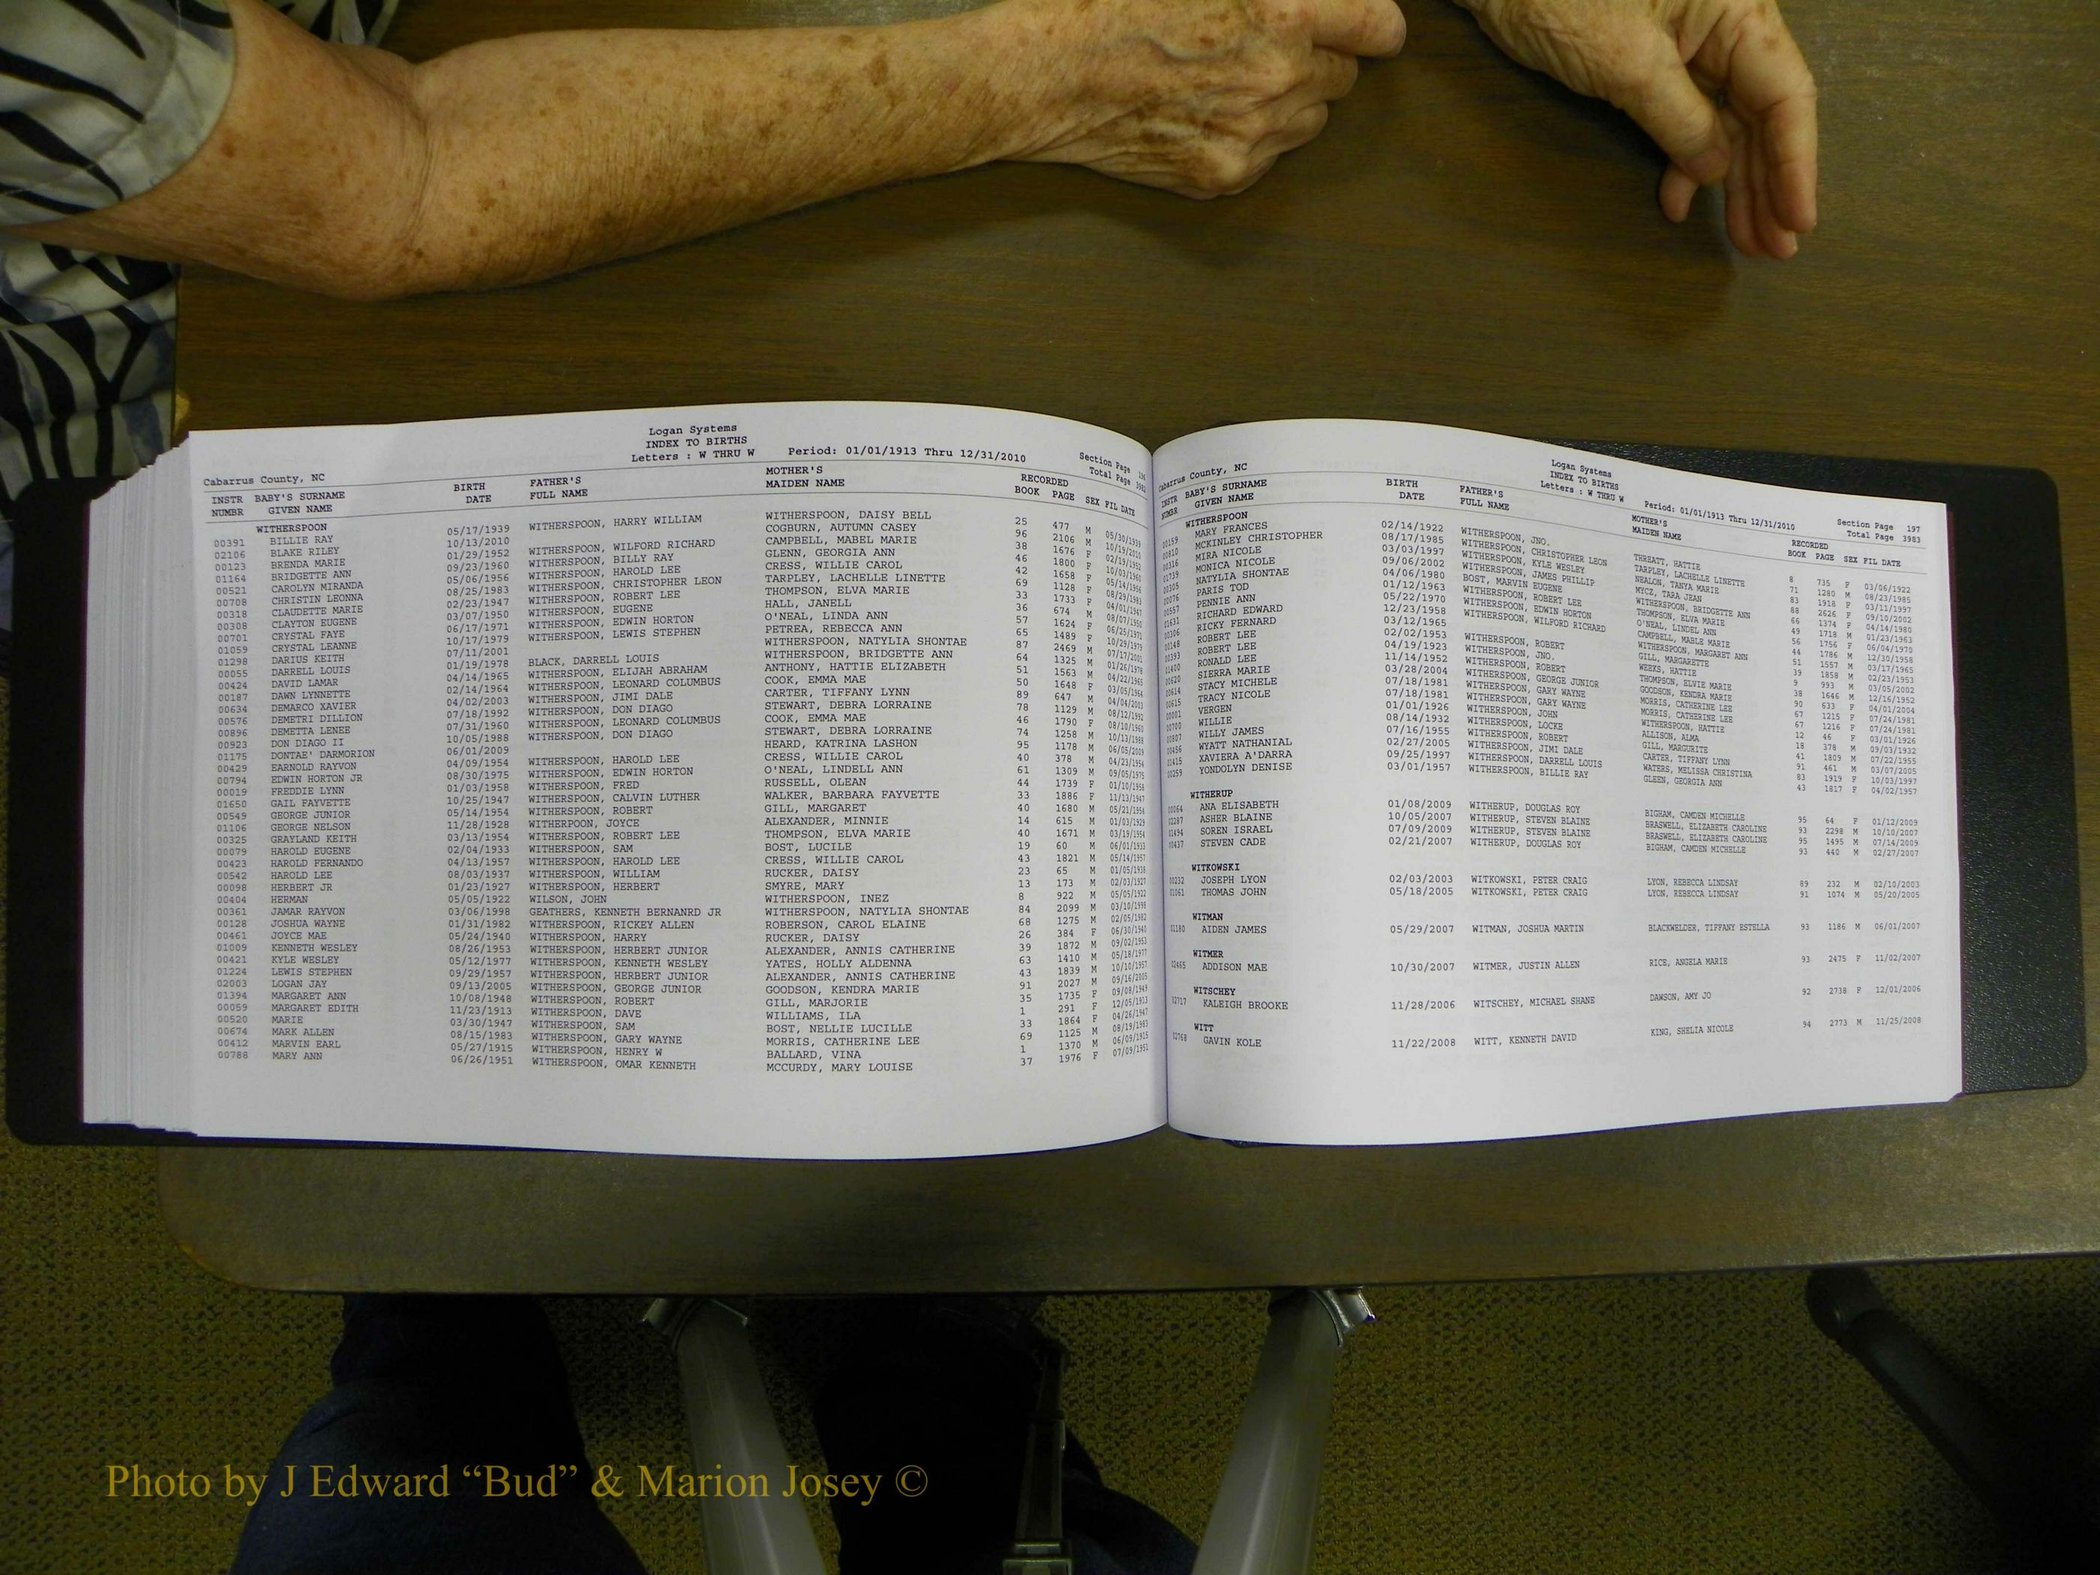 Logan Systems
INDEX TO BIRTHS
Letters : W THRU W Period: 01/01/1913 Thru 12/31/2010
Section Page 196
Total Page 3982
Cabarrus County, NC
INSTR BABY'S SURNAME BIRTH FATHER'S MOTHER'S RECORDED
NUMBR GIVEN NAME DATE FULL NAME MAIDEN NAME BOOK PAGE SEX FIL DATE
WITHERSPOON
00391 BILLIE RAY 05/17/1939 WITHERSPOON, HARRY WILLIAM WITHERSPOON, DAISY BELL 25 477 M 05/30/1939
02106 BLAKE RILEY 10/13/2010 COGBURN, AUTUMN CASEY 96 2106 M 10/19/2010
00123 BRENDA MARIE 01/29/1952 WITHERSPOON, WILFORD RICHARD CAMPBELL, MABEL MARIE 38 1676 F 02/19/1952
01164 BRIDGETTE ANN 09/23/1960 WITHERSPOON, BILLY RAY GLENN, GEORGIA ANN 46 1800 F 10/03/1961
00521 CAROLYN MIRANDA 05/06/1956 WITHERSPOON, HAROLD LEE CRESS, WILLIE CAROL 42 1658 F 05/14/1956
00708 CHRISTIN LEONNA 08/25/1983 WITHERSPOON, CHRISTOPHER LEON TARPLEY, LACHELLE LINETTE 69 1128 F 08/29/1983
00318 CLAUDETTE MARIE 02/23/1947 WITHERSPOON, ROBERT LEE THOMPSON, ELVA MARIE 33 1733 F 04/01/1947
00308 CLAYTON EUGENE 03/07/1950 WITHERSPOON, EUGENE HALL, JANELL 36 674 M 08/07/1950
00701 CRYSTAL FAYE 06/17/1971 WITHERSPOON, EDWIN HORTON O'NEAL, LINDA ANN 57 1624 F 06/25/1971
01059 CRYSTAL LEANNE 10/17/1979 WITHERSPOON, LEWIS STEPHEN PETREA, REBECCA ANN 65 1489 F 10/25/1979
01298 DARIUS KEITH 07/11/2001 WITHERSPOON, NATYLIA SHONTAE 87 2469 M 07/17/2001
00055 DARRELL LOUIS 01/19/1978 BLACK, DARRELL LOUIS WITHERSPOON, BRIDGETTE ANN 64 1325 M 01/26/1978
00424 DAVID LAMAR 04/14/1965 WITHERSPOON, ELIJAH ABRAHAM ANTHONY, HATTIE ELIZABETH 51 1563 M 04/22/1965
00187 DAWN LYNNETTE 02/14/1964 WITHERSPOON, LEONARD COLUMBUS COOK, EMMA MAE 50 1648 F 03/05/1964
00634 DEMARCO XAVIER 04/02/2003 WITHERSPOON, JIMI DALE CARTER, TIFFANY LYNN 89 647 M 04/04/2003
00576 DEMETRI DILLION 07/18/1992 WITHERSPOON, DON DIAGO STEWART, DEBRA LORRAINE 78 1129 M 08/12/1992
00896 DEMETTA LENEE 07/31/1960 WITHERSPOON, LEONARD COLUMBUS COOK, EMMA MAE 46 1790 F 08/10/1960
00923 DON DIAGO II 10/05/1988 WITHERSPOON, DON DIAGO STEWART, DEBRA LORRAINE 74 1258 M 10/13/1988
01175 DONTAE' DARMORION 06/01/2009 HEARD, KATRINA LASHON 95 1178 M 06/05/2009
00429 EARNOLD RAYVON 04/09/1954 WITHERSPOON, HAROLD LEE CRESS, WILLIE CAROL 40 378 M 04/23/1954
00794 EDWIN HORTON JR 08/30/1975 WITHERSPOON, EDWIN HORTON O'NEAL, LINDELL ANN 61 1309 M 09/05/1975
00019 FREDDIE LYNN 01/03/1958 WITHERSPOON, FRED RUSSELL, OLEAN 44 1739 F 01/10/1958
01650 GAIL FAYVETTE 10/25/1947 WITHERSPOON, CALVIN LUTHER WALKER, BARBARA FAYVETTE 33 1886 F 11/13/1947
00549 GEORGE JUNIOR 05/14/1954 WITHERSPOON, ROBERT GILL, MARGARET 40 1680 M 05/21/1954
01106 GEORGE NELSON 11/28/1928 WITHERPOON, JOYCE ALEXANDER, MINNIE 14 615 M 01/03/1929
00325 GRAYLAND KEITH 03/13/1954 WITHERSPOON, ROBERT LEE THOMPSON, ELVA MARIE 40 1671 M 03/19/1954
00079 HAROLD EUGENE 02/04/1933 WITHERSPOON, SAM BOST, LUCILE 19 60 M 06/01/1933
00423 HAROLD FERNANDO 04/13/1957 WITHERSPOON, HAROLD LEE CRESS, WILLIE CAROL 43 1821 M 05/14/1957
00542 HAROLD LEE 08/03/1937 WITHERSPOON, WILLIAM RUCKER, DAISY 23 65 M 01/05/1938
00098 HERBERT JR 01/23/1927 WITHERSPOON, HERBERT SMYRE, MARY 13 173 M 02/03/1927
00404 HERMAN 05/05/1922 WILSON, JOHN WITHERSPOON, INEZ 8 922 M 05/05/1922
00361 JAMAR RAYVON 03/06/1998 GEATHERS, KENNETH BERNANRD JR WITHERSPOON, NATYLIA SHONTAE 84 2099 M 03/10/1998
00128 JOSHUA WAYNE 01/31/1982 WITHERSPOON, RICKEY ALLEN ROBERSON, CAROL ELAINE 68 1275 M 02/05/1982
00461 JOYCE MAE 05/24/1940 WITHERSPOON, HARRY RUCKER, DAISY 26 384 F 06/30/1940
01009 KENNETH WESLEY 08/26/1953 WITHERSPOON, HERBERT JUNIOR ALEXANDER, ANNIS CATHERINE 39 1872 M 09/02/1953
00421 KYLE WESLEY 05/12/1977 WITHERSPOON, KENNETH WESLEY YATES, HOLLY ALDENNA 63 1410 M 05/18/1977
01224 LEWIS STEPHEN 09/29/1957 WITHERSPOON, HERBERT JUNIOR ALEXANDER, ANNIS CATHERINE 43 1839 M 10/10/1957
02003 LOGAN JAY 09/13/2005 WITHERSPOON, GEORGE JUNIOR GOODSON, KENDRA MARIE 91 2027 M 09/16/2005
01394 MARGARET ANN 10/08/1948 WITHERSPOON, ROBERT GILL, MARJORIE 35 1735 F 09/08/1949
00059 MARGARET EDITH 11/23/1913 WITHERSPOON, DAVE WILLIAMS, ILA 1 291 F 12/05/1913
00520 MARIE 03/30/1947 WITHERSPOON, SAM BOST, NELLIE LUCILLE 33 1864 F 04/26/1947
00674 MARK ALLEN 08/15/1983 WITHERSPOON, GARY WAYNE MORRIS, CATHERINE LEE 69 1125 M 08/19/1983
00412 MARVIN EARL 05/27/1915 WITHERSPOON, HENRY W BALLARD, VINA 1 1370 M 06/09/1915
00788 MARY ANN 06/26/1951 WITHERSPOON, OMAR KENNETH MCCURDY, MARY LOUISE 37 1976 F 07/09/1951
Logan Systems
INDEX TO BIRTHS
Letters : W THRU W Period: 01/01/1913 Thru 12/31/2010
Section Page 197
Total Page 3983
Cabarrus County, NC
INSTR BABY'S SURNAME BIRTH FATHER'S MOTHER'S RECORDED
NUMBR GIVEN NAME DATE FULL NAME MAIDEN NAME BOOK PAGE SEX FIL DATE
WITHERSPOON
00159 MARY FRANCES 02/14/1922 WITHERSPOON, JNO. THREATT, HATTIE 8 735 F 03/06/1922
00810 MCKINLEY CHRISTOPHER 08/17/1985 WITHERSPOON, CHRISTOPHER LEON TARPLEY, LACHELLE LINETTE 71 1280 M 08/23/1985
00316 MIRA NICOLE 03/03/1997 WITHERSPOON, KYLE WESLEY NEALON, TANYA MARIE 83 1918 F 03/11/1997
01739 MONICA NICOLE 09/06/2002 WITHERSPOON, JAMES PHILLIP MYCZ, TARA JEAN 88 2626 F 09/10/2002
00305 NATYLIA SHONTAE 04/06/1980 BOST, MARVIN EUGENE WITHERSPOON, BRIDGETTE ANN 66 1374 F 04/14/1980
00076 PARIS TOD 01/12/1963 WITHERSPOON, ROBERT LEE THOMPSON, ELVA MARIE 49 1718 M 01/23/1963
00557 PENNIE ANN 05/22/1970 WITHERSPOON, EDWIN HORTON O'NEAL, LINDEL ANN 56 1756 F 06/04/1970
01631 RICHARD EDWARD 12/23/1958 WITHERSPOON, WILFORD RICHARD CAMPBELL, MABLE MARIE 44 1786 M 12/30/1958
00306 RICKY FERNARD 03/12/1965 WITHERSPOON, MARGARET ANN 51 1557 M 03/17/1965
00148 ROBERT LEE 02/02/1953 WITHERSPOON, ROBERT GILL, MARGARETTE 39 1858 M 02/23/1953
00393 ROBERT LEE 04/19/1923 WITHERSPOON, JNO. WEEKS, HATTIE 9 993 M 03/05/2002
01400 RONALD LEE 11/14/1952 WITHERSPOON, ROBERT THOMPSON, ELVIE MARIE 38 1646 M 12/16/1952
00620 SIERRA MARIE 03/28/2004 WITHERSPOON, GEORGE JUNIOR GOODSON, KENDRA MARIE 90 633 F 04/01/2004
00614 STACY MICHELE 07/18/1981 WITHERSPOON, GARY WAYNE MORRIS, CATHERINE LEE 67 1215 F 07/24/1981
00615 TRACY NICOLE 07/18/1981 WITHERSPOON, GARY WAYNE MORRIS, CATHERINE LEE 67 1216 F 07/24/1981
00001 VERGEN 01/01/1926 WITHERSPOON, JOHN WITHERSPOON, HATTIE 12 46 F 03/01/1926
00700 WILLIE 08/14/1932 WITHERSPOON, LOCKE ALLISON, ALMA 18 378 M 09/03/1932
00807 WILLY JAMES 07/16/1955 WITHERSPOON, ROBERT GILL, MARGURITE 41 1809 M 07/22/1955
00456 WYATT NATHANIAL 02/27/2005 WITHERSPOON, JIMI DALE CARTER, TIFFANY LYNN 91 461 M 03/07/2005
01415 XAVIERA A'DARRA 09/25/1997 WITHERSPOON, DARRELL LOUIS WATERS, MELISSA CHRISTINA 83 1919 F 10/03/1997
00259 YONDOLYN DENISE 03/01/1957 WITHERSPOON, BILLIE RAY GLEEN, GEORGIA ANN 43 1817 F 04/02/1957
WITHERUP
00064 ANA ELISABETH 01/08/2009 WITHERUP, DOUGLAS ROY BIGHAM, CAMDEN MICHELLE 95 64 F 01/12/2009
02287 ASHER BLAINE 10/05/2007 WITHERUP, STEVEN BLAINE BRASWELL, ELIZABETH CAROLINE 93 2298 M 10/10/2007
01494 SOREN ISRAEL 07/09/2009 WITHERUP, STEVEN BLAINE BRASWELL, ELIZABETH CAROLINE 95 1495 M 07/14/2009
00437 STEVEN CADE 02/21/2007 WITHERUP, DOUGLAS ROY BIGHAM, CAMDEN MICHELLE 93 440 M 02/27/2007
WITKOWSKI
00232 JOSEPH LYON 02/03/2003 WITKOWSKI, PETER CRAIG LYON, REBECCA LINDSAY 89 232 M 02/10/2003
01061 THOMAS JOHN 05/18/2005 WITKOWSKI, PETER CRAIG LYON, REBECCA LINDSAY 91 1074 M 05/20/2005
WITMAN
01180 AIDEN JAMES 05/29/2007 WITMAN, JOSHUA MARTIN BLACKWELDER, TIFFANY ESTELLA 93 1186 M 06/01/2007
WITMER
02465 ADDISON MAE 10/30/2007 WITMER, JUSTIN ALLEN RICE, ANGELA MARIE 93 2475 F 11/02/2007
WITSCHEY
02717 KALEIGH BROOKE 11/28/2006 WITSCHEY, MICHAEL SHANE DAWSON, AMY JO 92 2738 F 12/01/2006
WITT
02768 GAVIN KOLE 11/22/2008 WITT, KENNETH DAVID KING, SHELIA NICOLE 94 2773 M 11/25/2008
Photo by J Edward “Bud” & Marion Josey ©